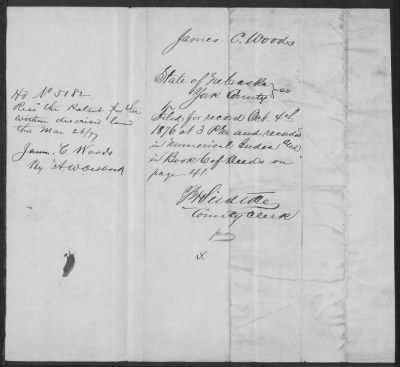 James C. Woods
State of Nebraska
York County } ss
Filed for record Oct. 4th
1876 at 3 P.M. and recorded
in Numerical Index and
in Book C of Deeds on
page 41.
County Clerk
x
Hd No 5182
Rec'd the Patent for the
within described land
this Mar 26/77
James C. Woods
By